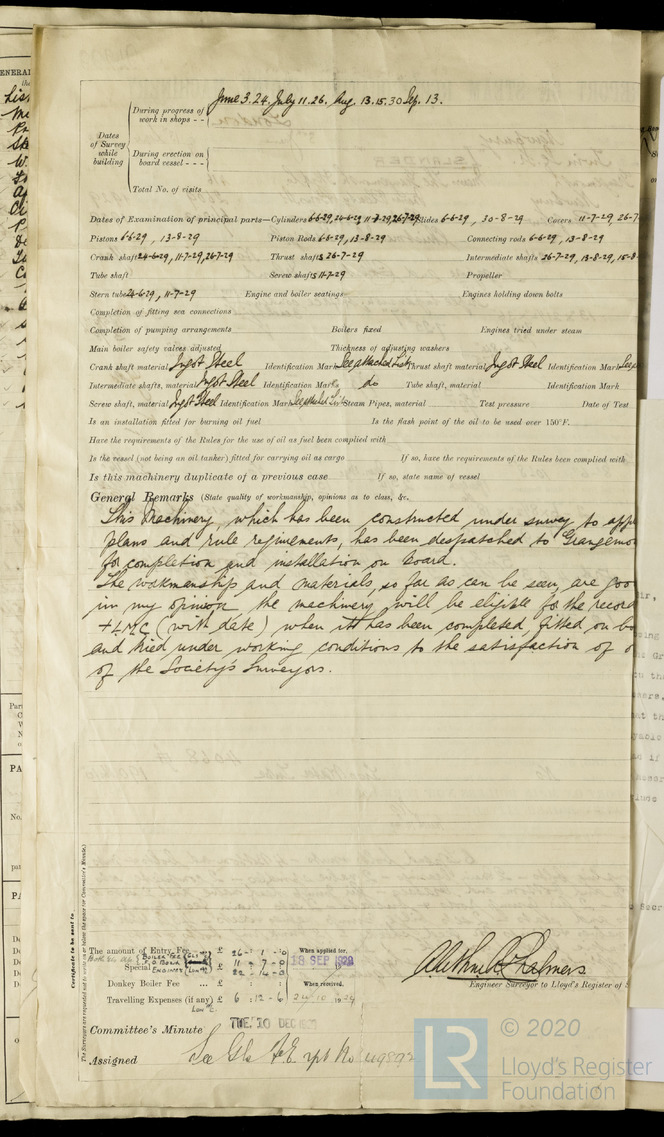 June 3. 24. July 11. 26. Aug. 13. 15. 30 Sep. 13.
During progress of work in shops - -
Dates of Survey while building
During erection on board vessel - - -
Total No. of visits
Dates of Examination of principal parts—Cylinders 6-6-29, 24-6-29, 11-7-29, 26-7-29 Slides 6-6-29, 30-8-29 Covers 11-7-29, 26-7-
Pistons 6-6-29, 13-8-29 Piston Rods 6-6-29, 13-8-29 Connecting rods 6-6-29, 13-8-29
Crank shaft 24-6-29, 11-7-29, 26-7-29 Thrust shafts 26-7-29 Intermediate shafts 26-7-29, 13-8-29, 15-8-
Tube shaft Screw shafts 11-7-29 Propeller
Stern tube 24-6-29, 11-7-29 Engine and boiler seatings Engines holding down bolts
Completion of fitting sea connections
Completion of pumping arrangements Boilers fixed Engines tried under steam
Main boiler safety valves adjusted Thickness of adjusting washers
Crank shaft material Ingot Steel Identification Mark See attached List Thrust shaft material Ingot Steel Identification Mark See
Intermediate shafts, material Ingot Steel Identification Marks do Tube shaft, material Identification Mark
Screw shaft, material Ingot Steel Identification Mark See attached List Steam Pipes, material Test pressure Date of Test
Is an installation fitted for burning oil fuel Is the flash point of the oil to be used over 150°F.
Have the requirements of the Rules for the use of oil as fuel been complied with
Is the vessel (not being an oil tanker) fitted for carrying oil as cargo If so, have the requirements of the Rules been complied with
Is this machinery duplicate of a previous case If so, state name of vessel
General Remarks (State quality of workmanship, opinions as to class, &c.
This Machinery, which has been constructed under survey to app
plans and rule requirements, has been despatched to Grangemo
for completion and installation on board.
The workmanship and materials, so far as can be seen, are goo
in my opinion the machinery will be eligible for the record
+LMC (with date) when it has been completed, fitted on bo
and tried under working conditions to the satisfaction of o
of the Society's Surveyors.
Certificate to be sent to
The amount of Entry Fee ... £ 26 : 1 : 0 When applied for,
Special £ 11 : 7 : 0 18 SEP 1929
Donkey Boiler Fee ... £ When received,
Travelling Expenses (if any) £ 6 : 12 : 6 24/10 1929
Engineer Surveyor to Lloyd's Register of S
Committee's Minute TUE. 10 DEC 1929
Assigned See Gls F.E. rpt No 49892
© 2020
LR Lloyd's Register
Foundation